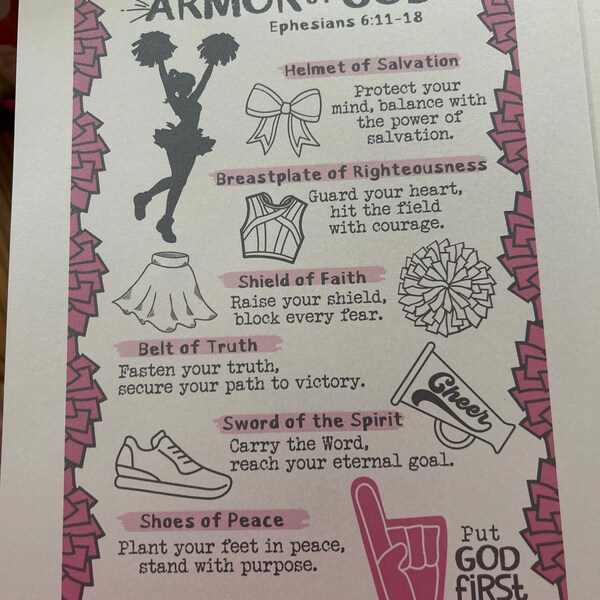 ARMOR OF GOD
Ephesians 6:11-18
Helmet of Salvation
Protect your
mind, balance with
the power of
salvation.
Breastplate of Righteousness
Guard your heart,
hit the field
with courage.
Shield of Faith
Raise your shield,
block every fear.
Belt of Truth
Fasten your truth,
secure your path to victory.
Cheer
Sword of the Spirit
Carry the Word,
reach your eternal goal.
Shoes of Peace
Plant your feet in peace,
stand with purpose.
Put
GOD
fiRSt